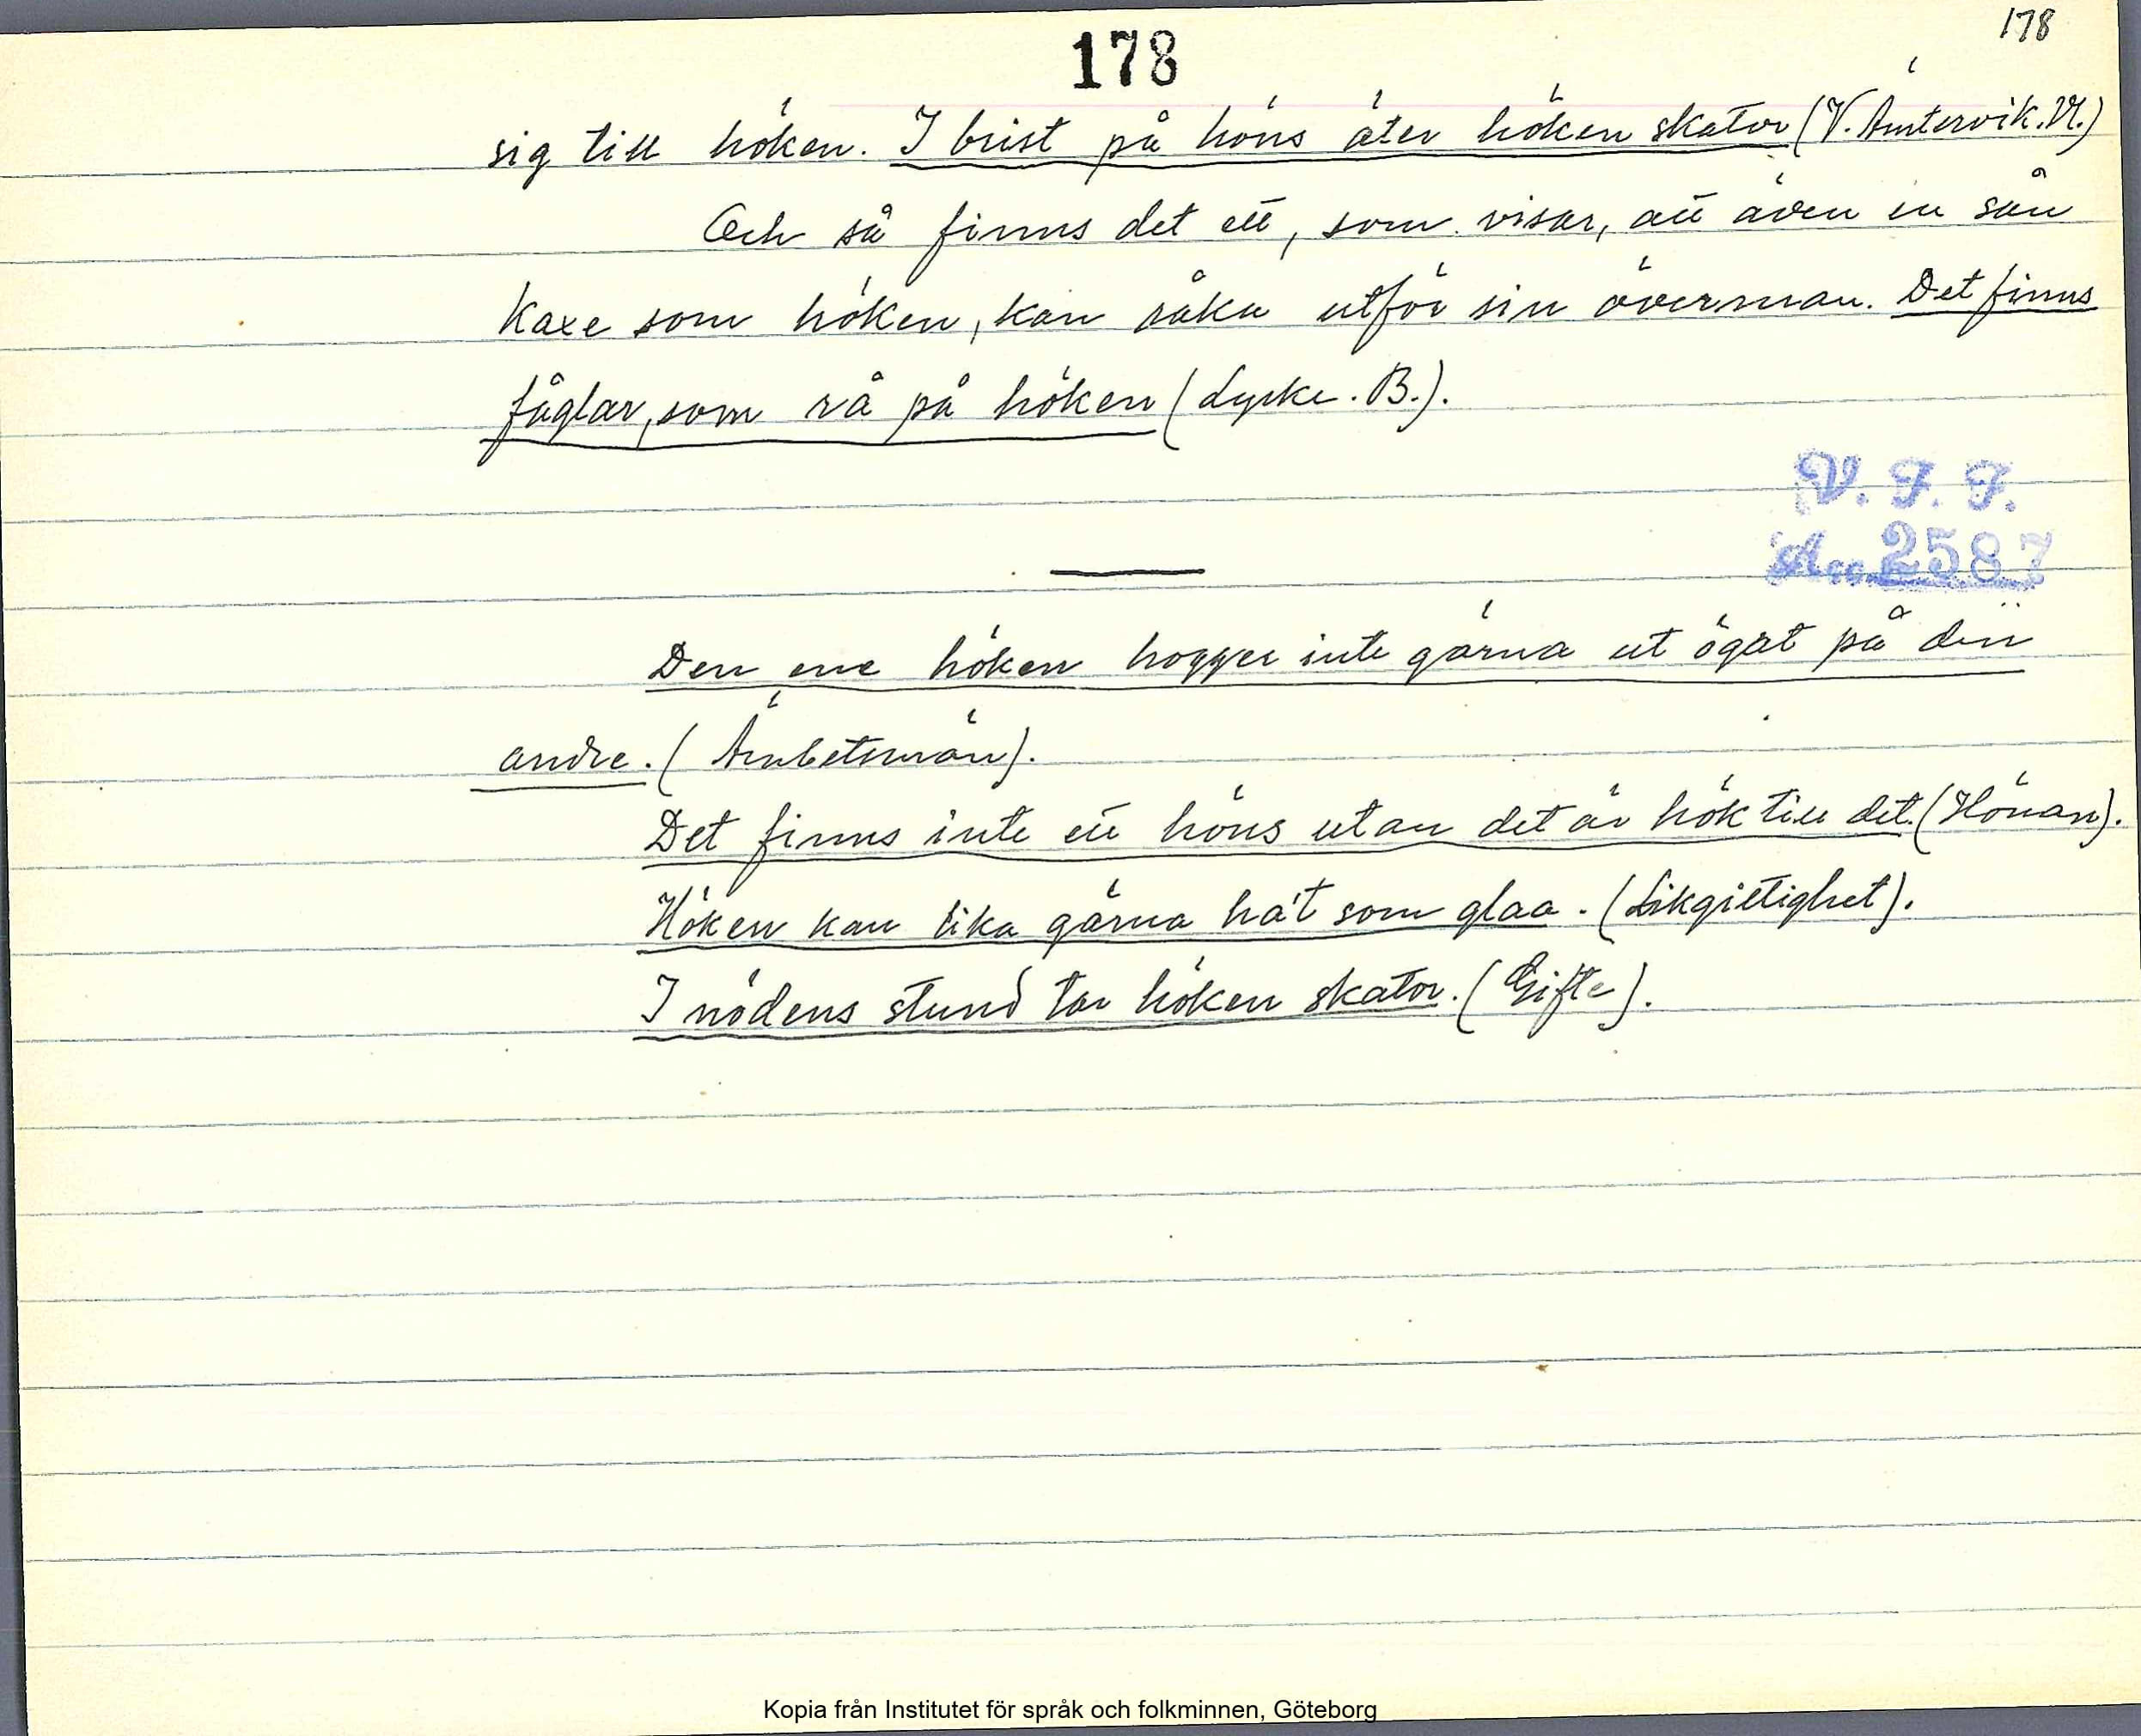 178
178
sig till höken. I brist på höns äter höken skator (V. Ämtervik. Vl.)
Och så finns det ett, som visar, att även en sån
kaxe som höken, kan råka utför sin överman. Det finns
fåglar, som rå på höken (Lycke. B.).
V. F. F.
Acc. 2587
Den ene höken hogger inte gärna ut ögat på den
andre. (Ämbetsmän).
Det finns inte ett höns utan det är hök till det. (Hönan).
Höken kan lika gärna ha't som glaa. (Likgiltighet).
I nödens stund tar höken skator. (Gifte).
Kopia från Institutet för språk och folkminnen, Göteborg